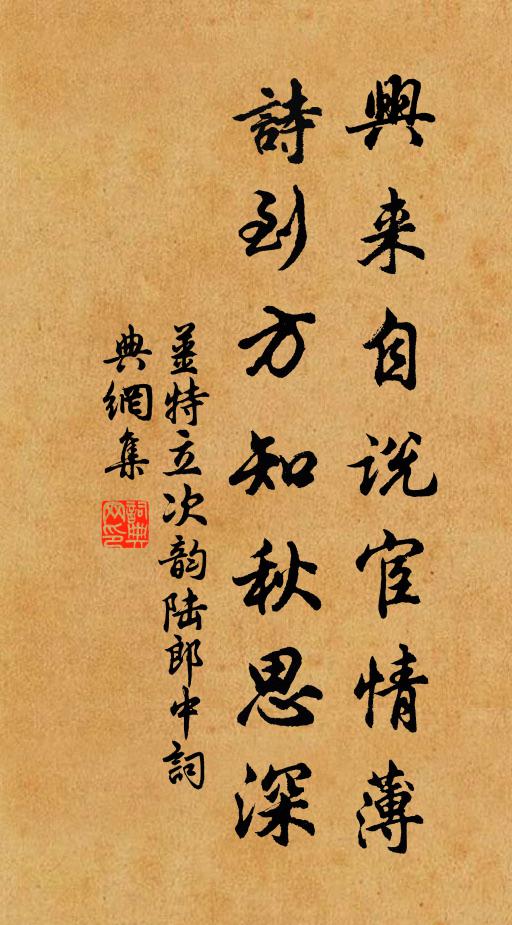 興来自説宦情薄
詩到方知秋思深
薑特立次韵陆郎中詞
典網集
詞典网印